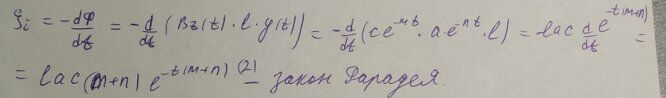 ξi = -dφ/dt = -d/dt (Bz(t) · l · y(t)) = -d/dt (ce^-mt · a·e^-nt · l) = lac d/dt e^-t(m+n) =
= lac(m+n) e^-t(m+n) (2) – закон Фарадея.